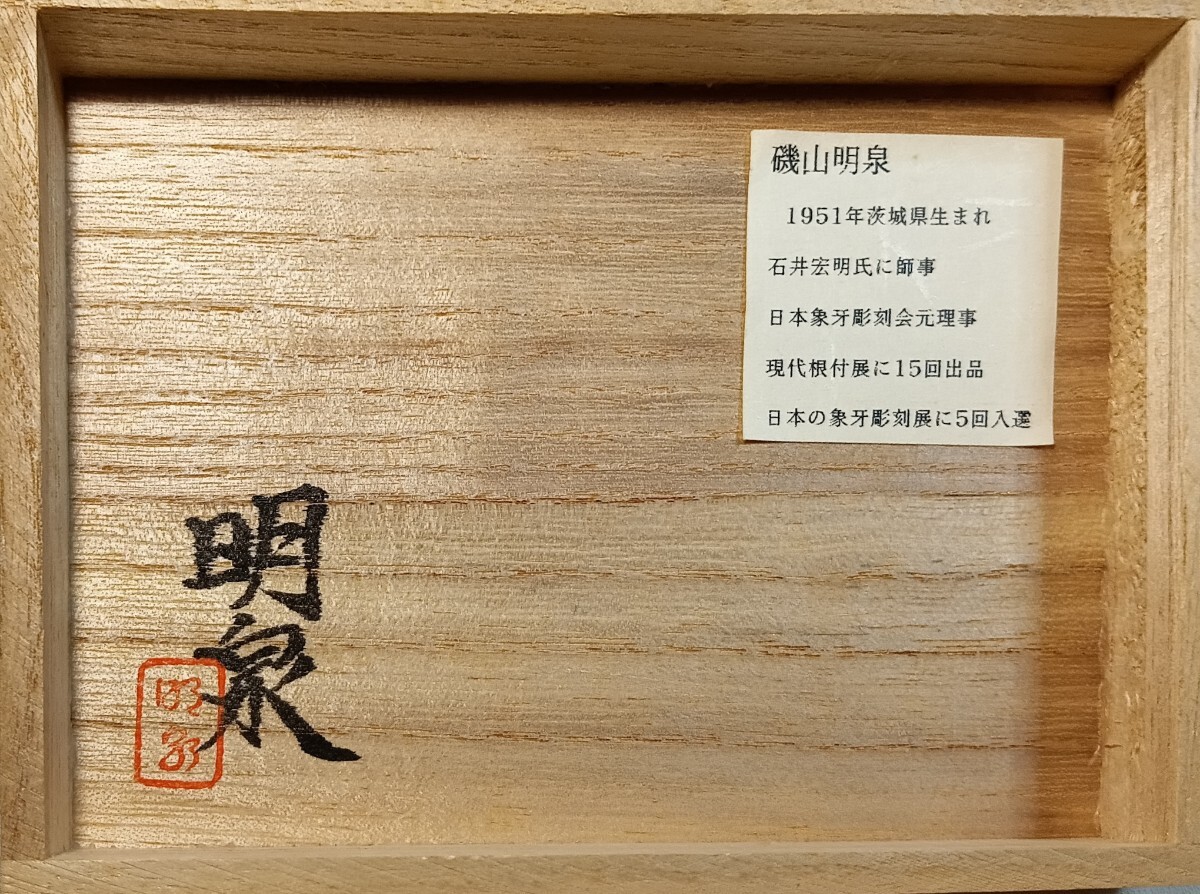 磯山明泉
1951年茨城県生まれ
石井宏明氏に師事
日本象牙彫刻会元理事
現代根付展に15回出品
日本の象牙彫刻展に5回入選
明泉
明泉